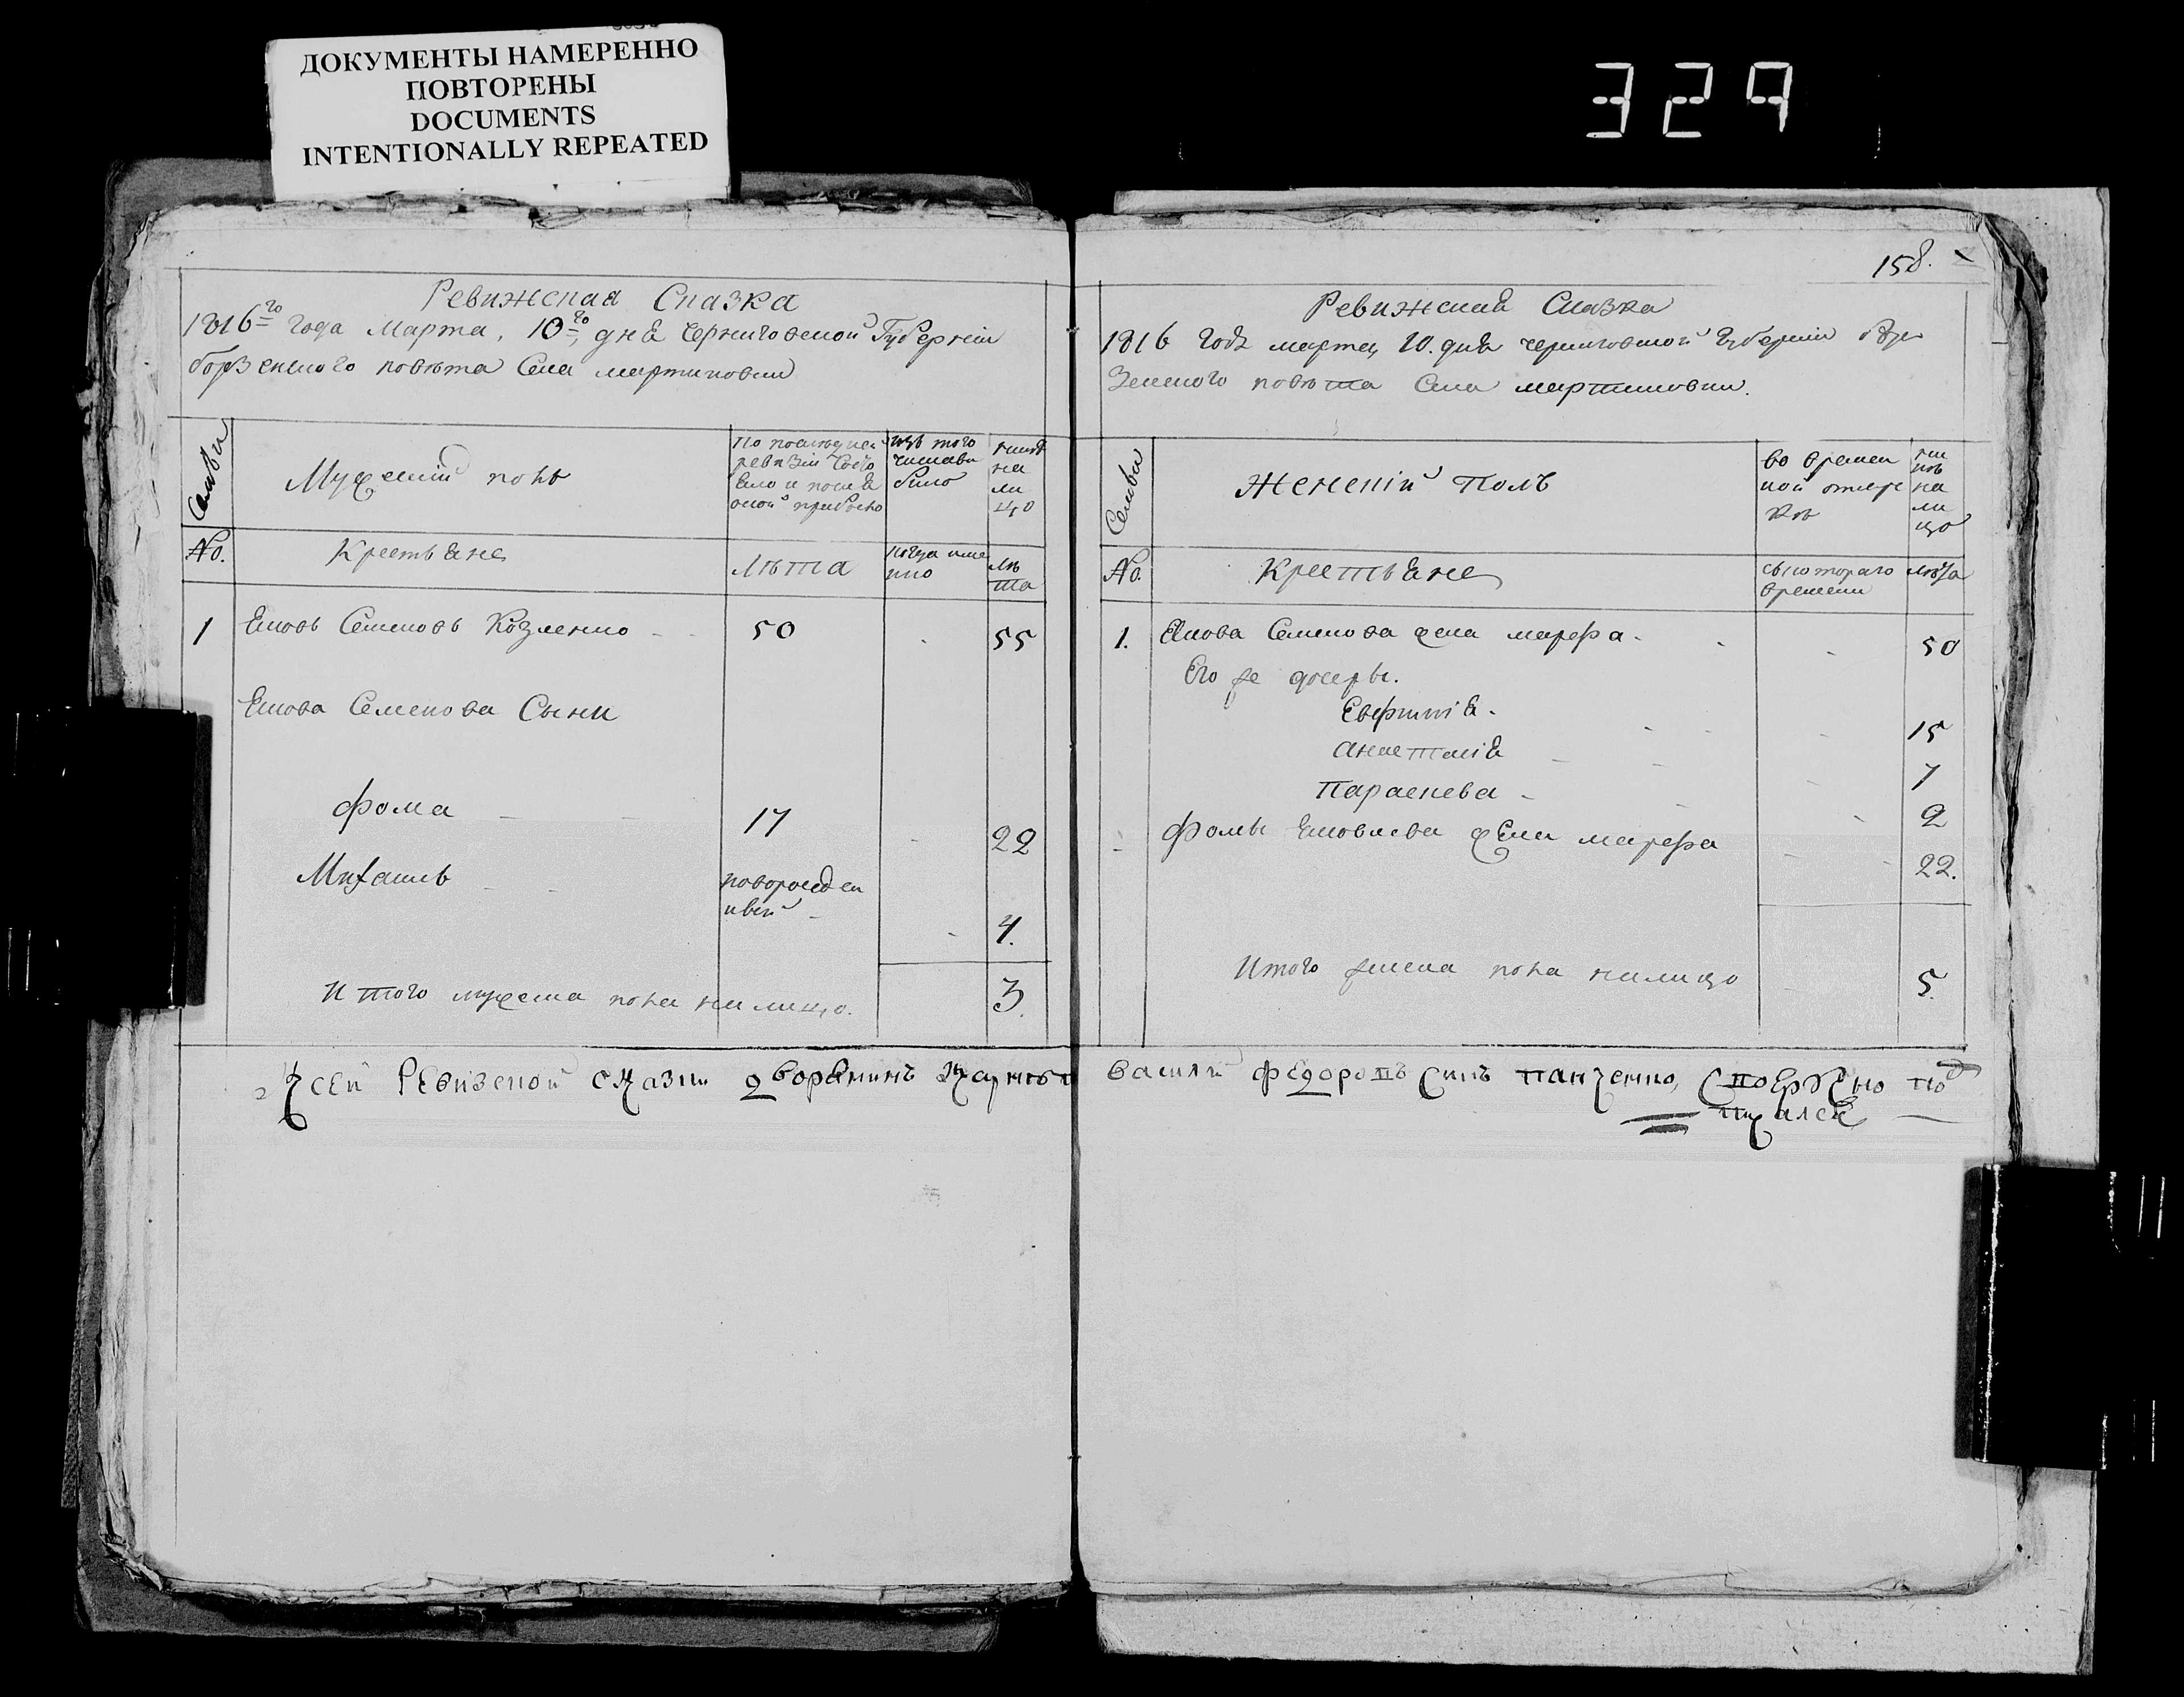 ДОКУМЕНТЫ НАМЕРЕННО
ПОВТОРЕНЫ
DOCUMENTS
INTENTIONALLY REPEATED
329
Ревижская Сказка
1816го года Марта, 10го дня Черниговской Губернїи
борзенского повѣта Села мартиновки
Семьи
Мужескїй полъ
По последней
ревизїи состо
яло и после
оной прибыло
изъ того
числа вы
было
ныне
на
ли
цо
No.
Крестьяне
Лѣта
когда име
нно
лѣ
та
1
Яковъ Семеновъ Козленко
50
55
Якова Семенова Сыни
фома
17
22
Михаилъ
новорожден
ный
4.
Итого мужеска пола на лицо.
3.
158.
Ревижская Сказка
1816 года марта, 10. дня черниговской губернїи Бор
зенского повѣта Села мартиновки.
Семьи
Женскїй Полъ
во времен
ной отлуч
кѣ
ны
нѣ
на
ли
цо
No.
Крестьяне
съ котораго
времени
лѣта
1.
Якова Семенова жена марфа
50
Его же дочеры.
Евфимїя
15
анастасїя
7
Параскева
2
Фомы Яковлева жена марфа
22.
Итого женска пола налицо
5.
К сей Ревизской сказки дворянинъ
Василий федоровъ Синъ панченко, по
писался